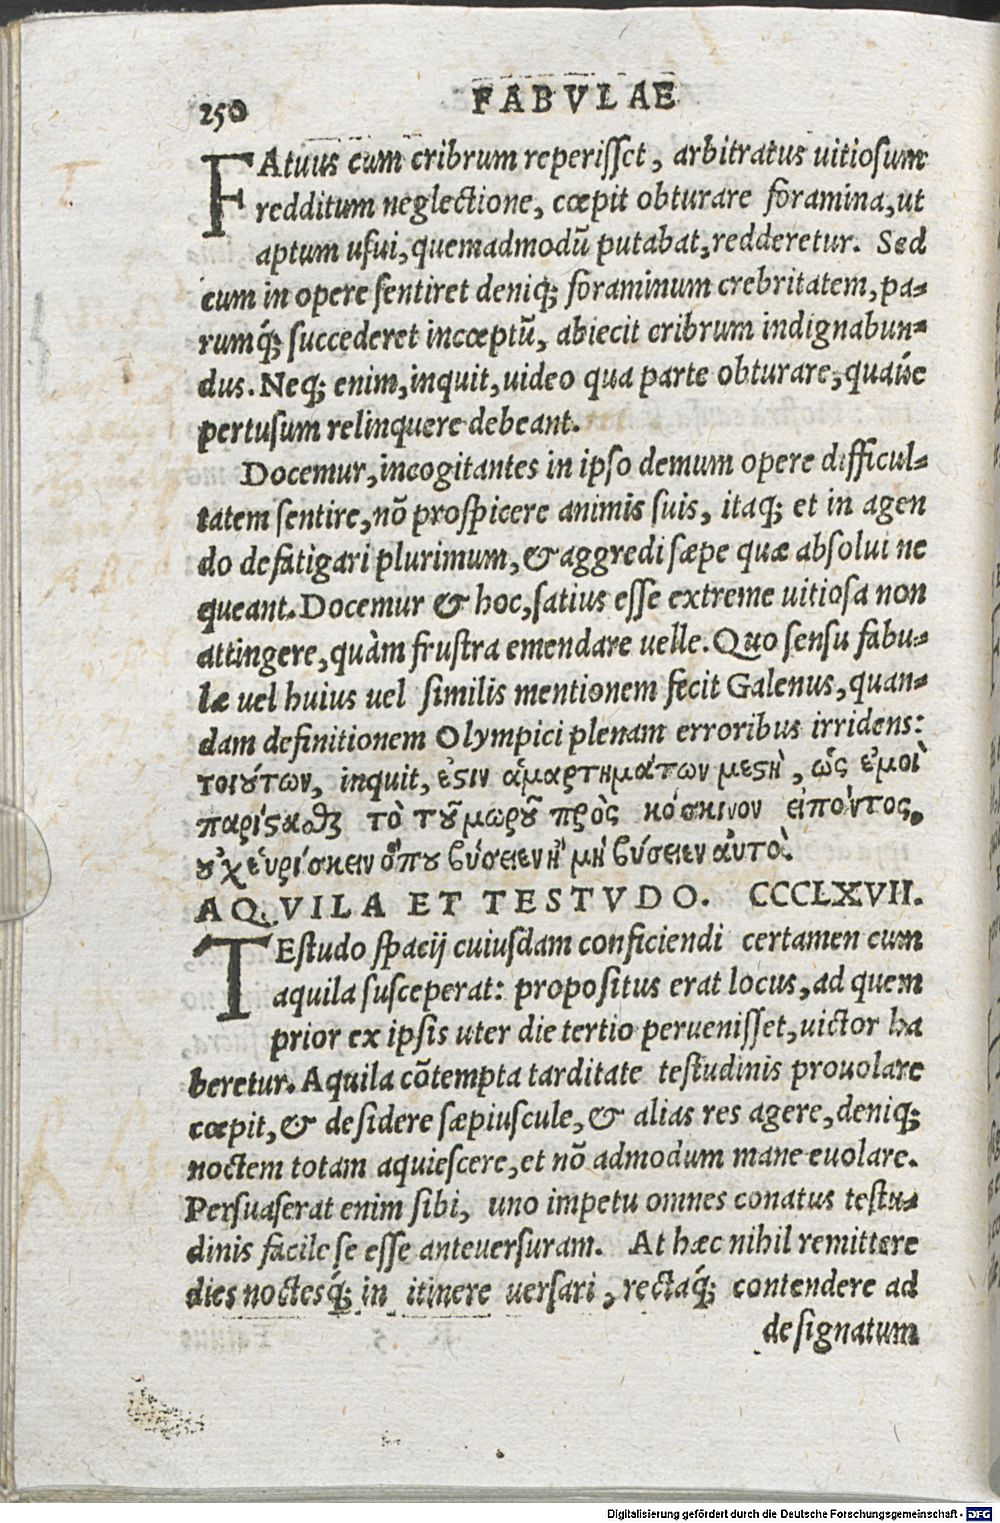 250 FABVLAE
FAtuus cum cribrum reperisset, arbitratus uitiosum
redditum neglectione, cœpit obturare foramina, ut
aptum usui, quemadmodũ putabat, redderetur. Sed
cum in opere sentiret deniq; foraminum crebritatem, pa=
rumq́; succederet incœptũ, abiecit cribrum indignabun=
dus. Neq; enim, inquit, uideo qua parte obturare, quaúe
pertusum relinquere debeant.
Docemur, incogitantes in ipso demum opere difficul=
tatem sentire, nõ prospicere animis suis, itaq; et in agen
do defatigari plurimum, & aggredi sæpe quæ absolui ne
queant. Docemur & hoc, satius esse extreme uitiosa non
attingere, quàm frustra emendare uelle. Quo sensu fabu=
læ uel huius uel similis mentionem fecit Galenus, quan=
dam definitionem Olympici plenam erroribus irridens:
τοιούτων, inquit, ἐςὶν ἁμαρτημάτων μεςὴ, ὡς ἐμοὶ
παρίςαϑϗ τὸ τοῦ μωροῦ πρὸς κόσκινον εἰπόντος,
οὐχ εὑρίσκειν ὅπου βύσειεν ἢ μὴ βύσειεν αὐτό.
AQVILA ET TESTVDO. CCCLXVII.
TEstudo spacij cuiusdam conficiendi certamen cum
aquila susceperat: propositus erat locus, ad quem
prior ex ipsis uter die tertio peruenisset, uictor ha
beretur. Aquila cõtempta tarditate testudinis prouolare
cœpit, & desidere sæpiuscule, & alias res agere, deniq;
noctem totam aquiescere, et nõ admodum mane euolare.
Persuaserat enim sibi, uno impetu omnes conatus testu=
dinis facile se esse anteuersuram. At hæc nihil remittere
dies noctesq́; in itinere uersari, rectaq́; contendere ad
designatum
Digitalisierung gefördert durch die Deutsche Forschungsgemeinschaft - DFG